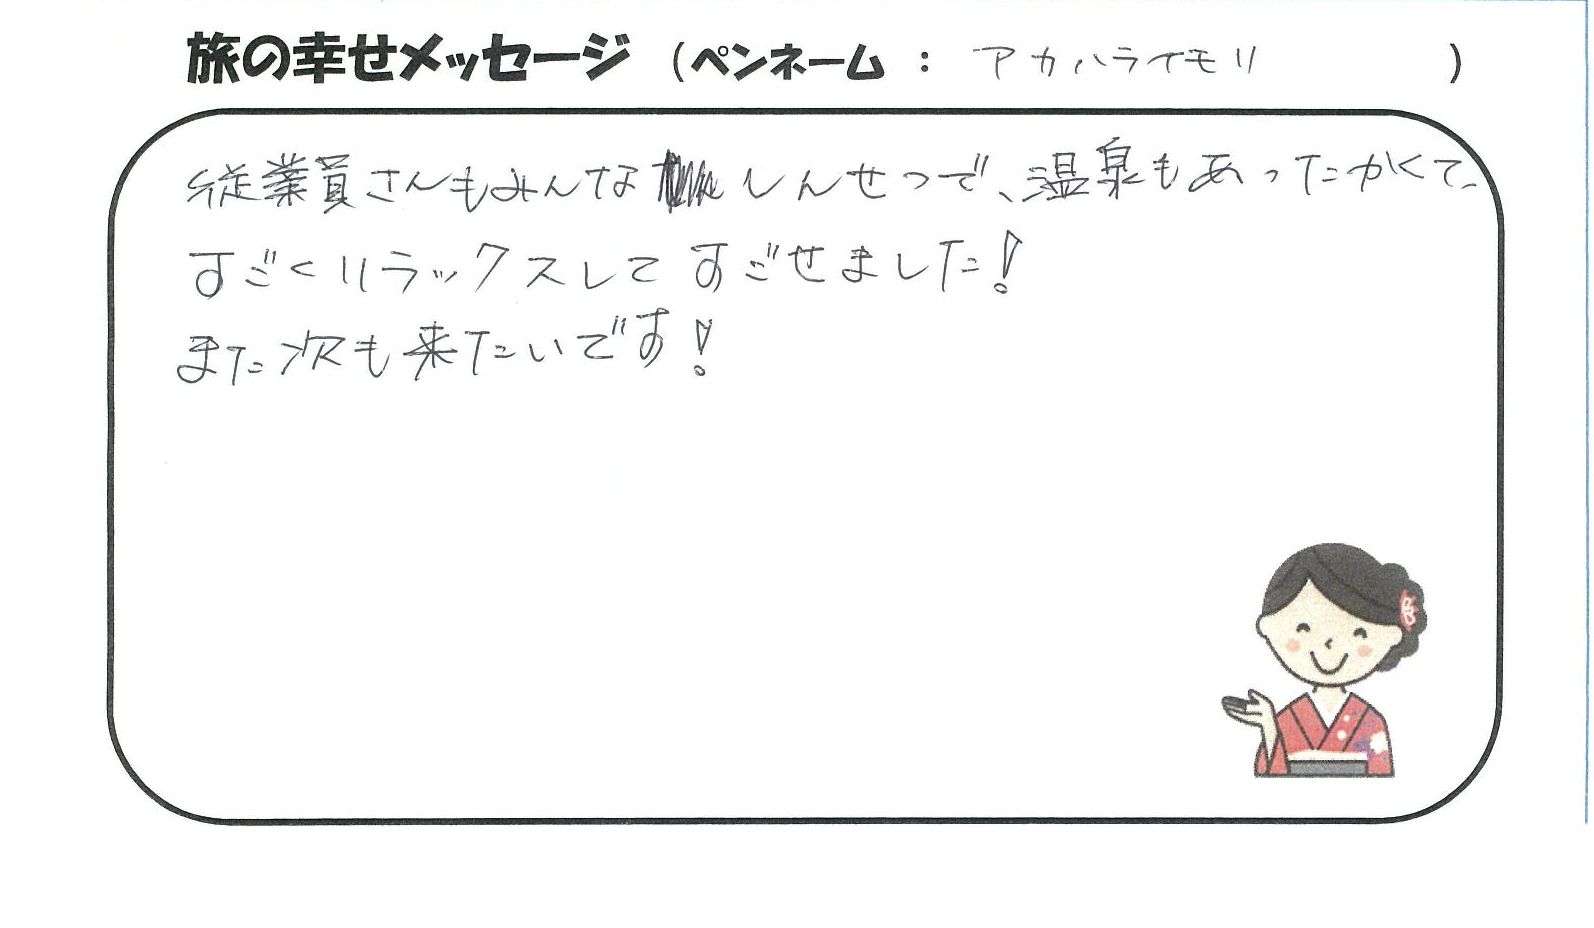 旅の幸せメッセージ (ペンネーム : アカハライモリ )
従業員さんもみんな しんせつで、温泉もあったかくて、
すごくリラックスして すごせました!
また次も来たいです!